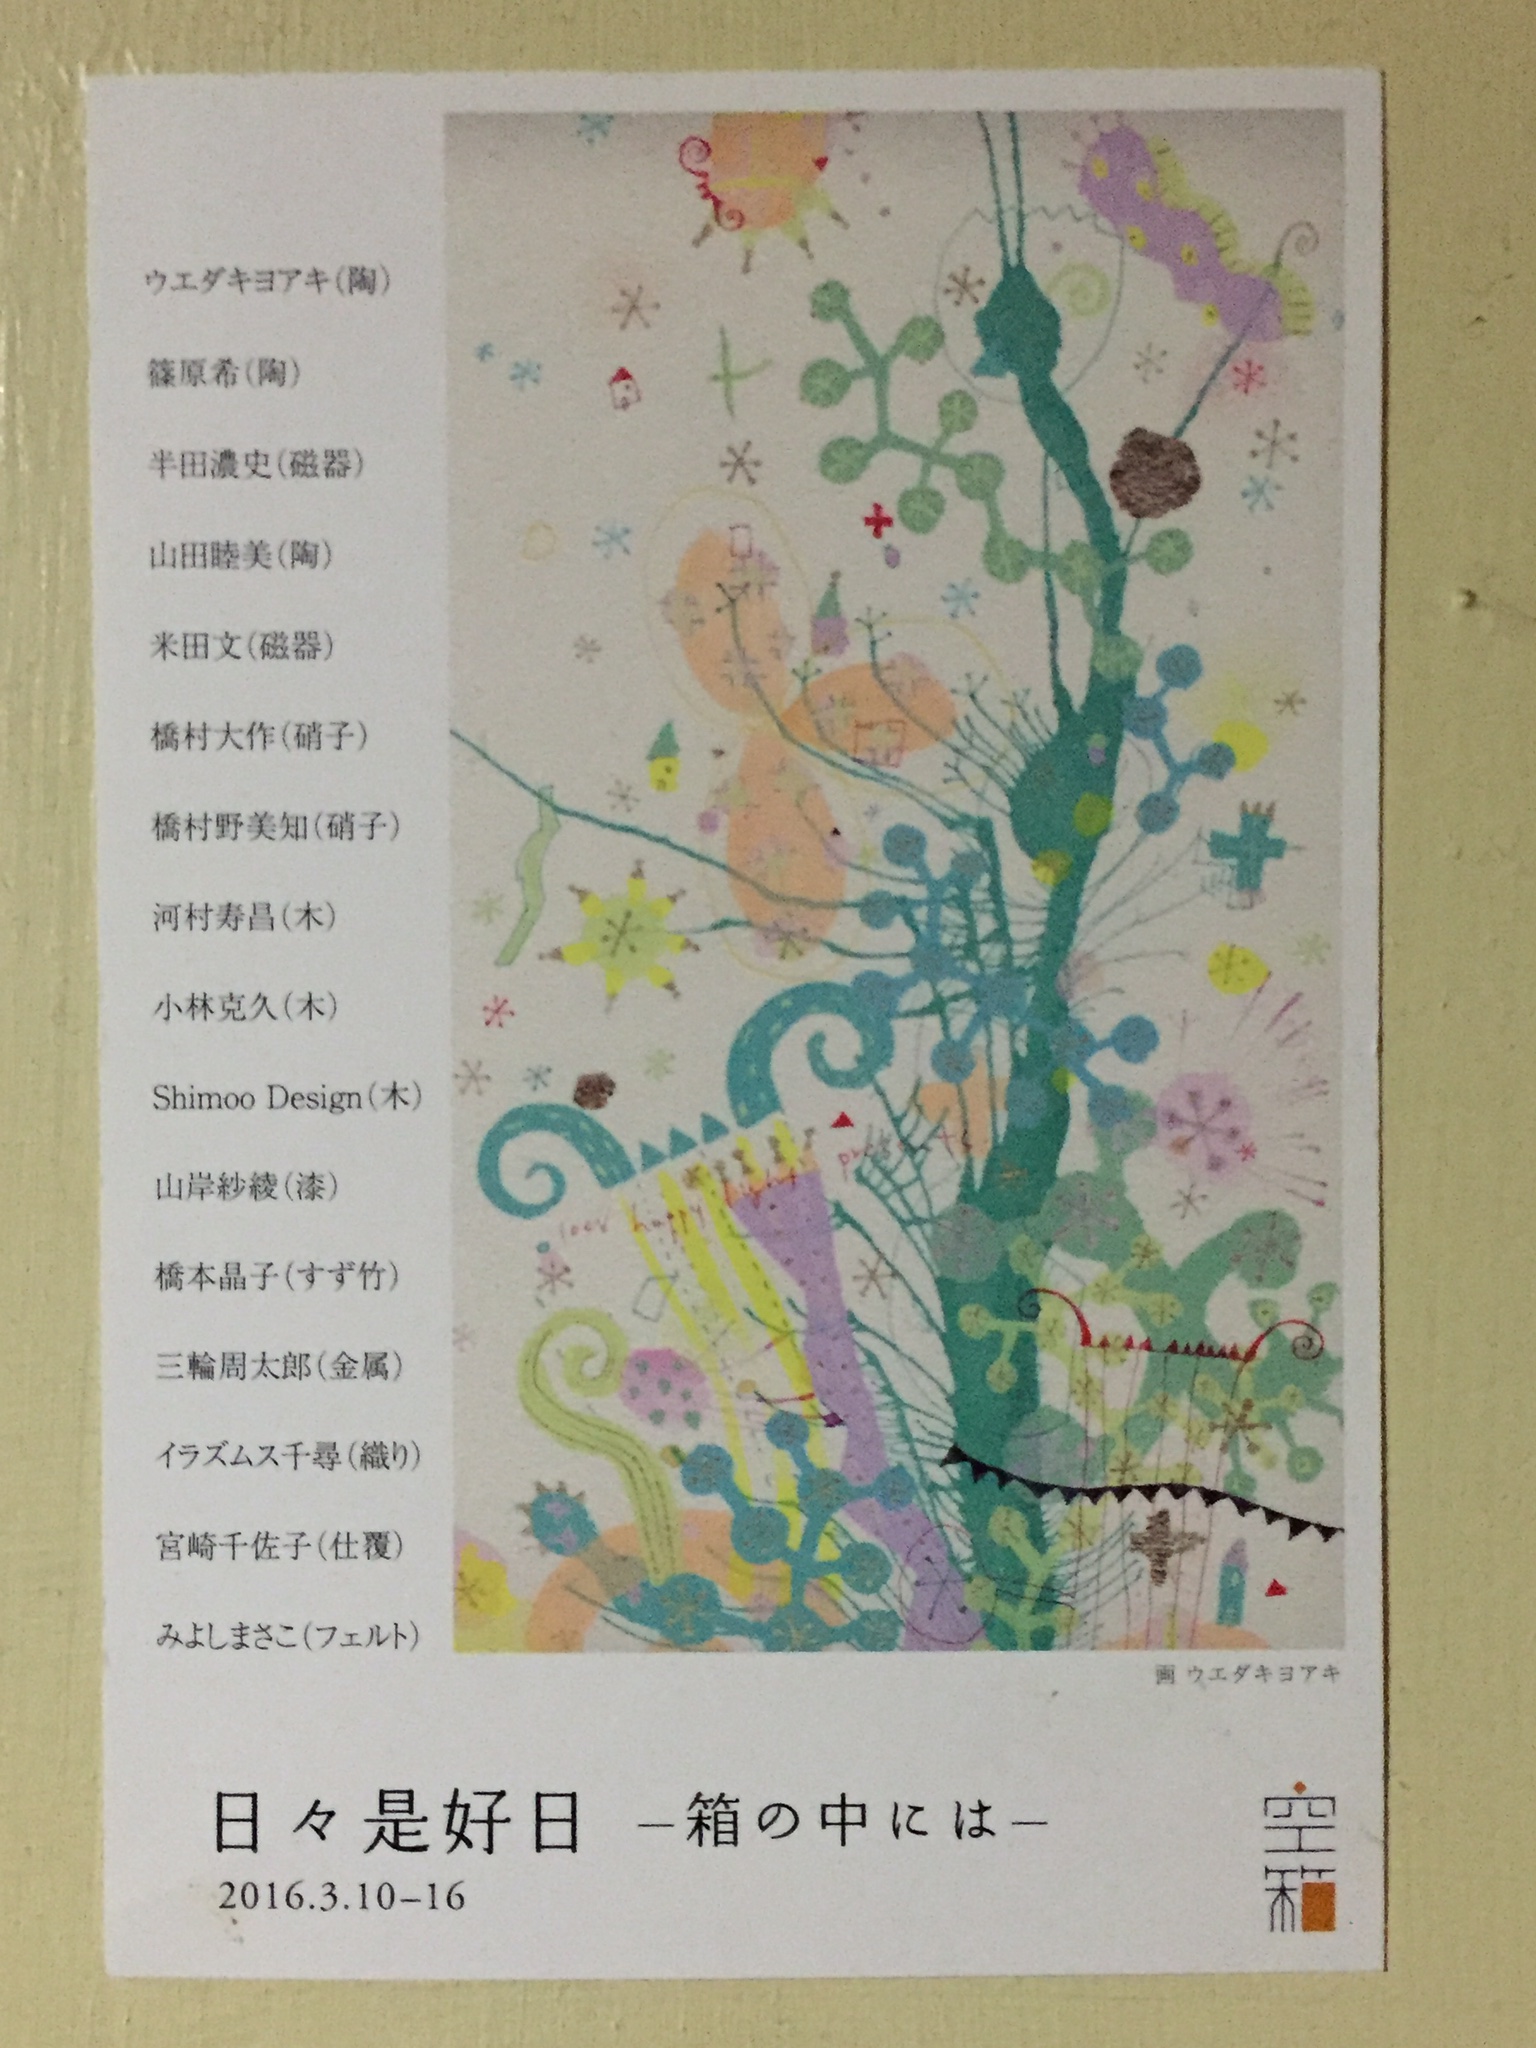 ウエダキヨアキ(陶)
篠原希(陶)
半田濃史(磁器)
山田睦美(陶)
米田文(磁器)
橋村大作(硝子)
橋村野美知(硝子)
河村寿昌(木)
小林克久(木)
Shimoo Design(木)
山岸紗綾(漆)
橋本晶子(すず竹)
三輪周太郎(金属)
イラズムス千尋(織り)
宮崎千佐子(仕覆)
みよしまさこ(フェルト)
happy
画 ウエダキヨアキ
日々是好日 −箱の中には−
2016.3.10−16
空箱